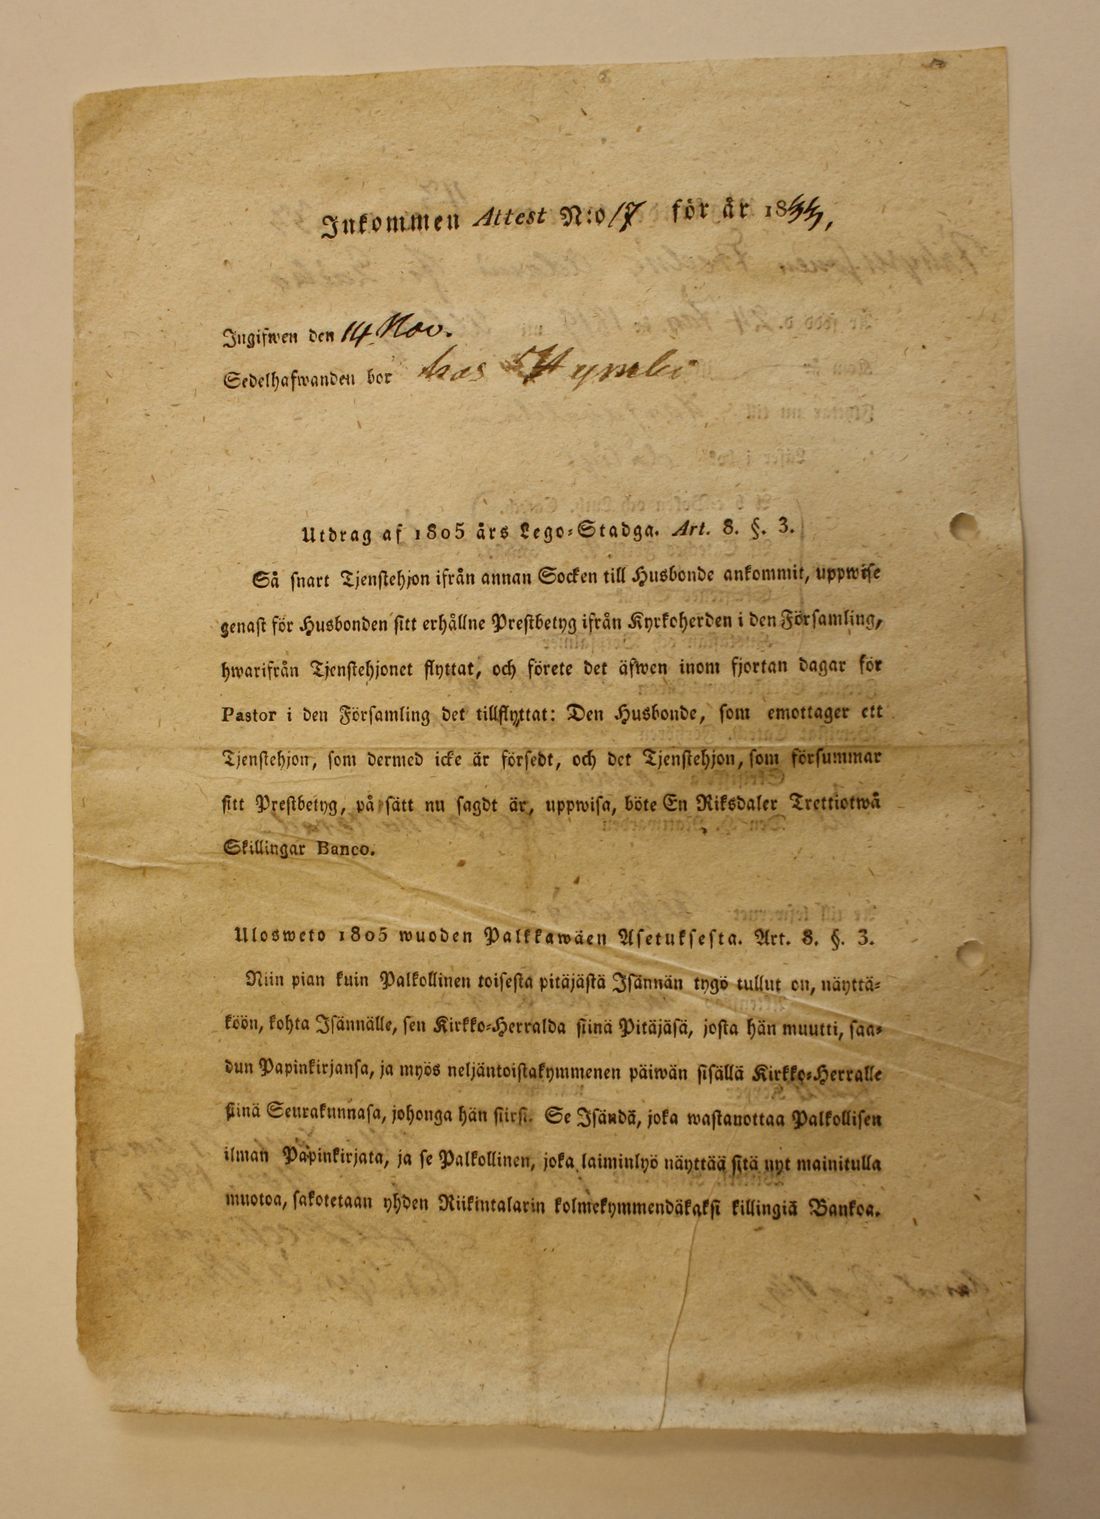 Inkommen Attest N:o 17 för år 1833,
Ingifwen den 14 Nov.
Sedelhafwanden bor hos
Utdrag af 1805 års Lego-Stadga. Art. 8. §. 3.
Så snart Tjenstehjon ifrån annan Socken till Husbonde ankommit, uppwise
genast för Husbonden sitt erhållne Prestbetyg ifrån Kyrkoherden i den Församling,
hwarifrån Tjenstehjonet flyttat, och förete det äfwen inom fjortan dagar för
Pastor i den Församling det tillflyttat: Den Husbonde, som emottager ett
Tjenstehjon, som dermed icke är försedt, och det Tjenstehjon, som försummar
sitt Prestbetyg, på sätt nu sagdt är, uppwisa, böte En Riksdaler Trettiotwå
Skillingar Banco.
Ulosweto 1805 wuoden Palkkawäen Asetuksesta. Art. 8. §. 3.
Niin pian kuin Palkollinen toisesta pitäjästä Isännän tygö tullut on, näyttä-
köön, kohta Isännälle, sen Kirkko-Herralda siinä Pitäjäsä, josta hän muutti, saa-
dun Papinkirjansa, ja myös neljäntoistakymmenen päiwän sisällä Kirkko-Herralle
siinä Seurakunnasa, johonga hän siirsi. Se Isändä, joka wastanottaa Palkollisen
ilman Papinkirjata, ja se Palkollinen, joka laiminlyö näyttää sitä nyt mainitulla
muotoa, sakotetaan yhden Riikintalarin kolmekymmendäkaksi killingiä Bankoa.